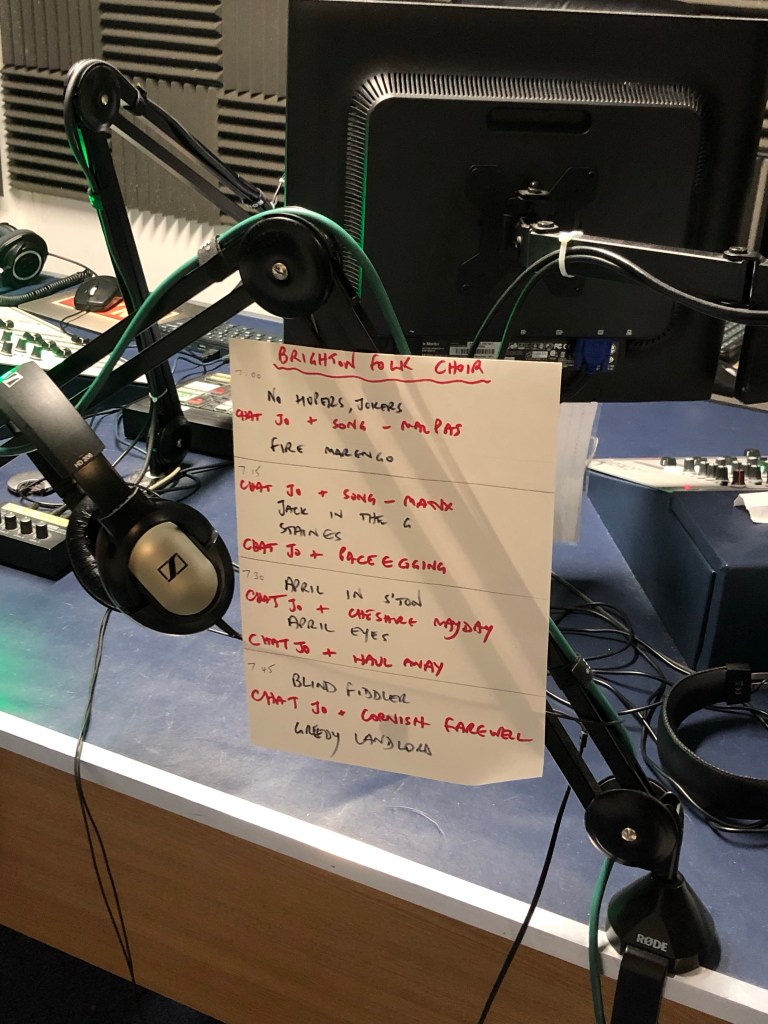 BRIGHTON FOLK CHOIR
7.00
NO HOPERS, JOKERS
CHAT JO + SONG - MALPAS
FIRE MARENGO
7.15
CHAT JO + SONG - MANX
JACK IN THE G
STAINES
CHAT JO + PACE EGGING
7.30
APRIL IN S'TON
CHAT JO + CHESHIRE MAYDAY
APRIL EYES
CHAT JO + HAUL AWAY
7.45
BLIND FIDDLER
CHAT JO + CORNISH FAREWELL
GREEDY LANDLORD
RØDE